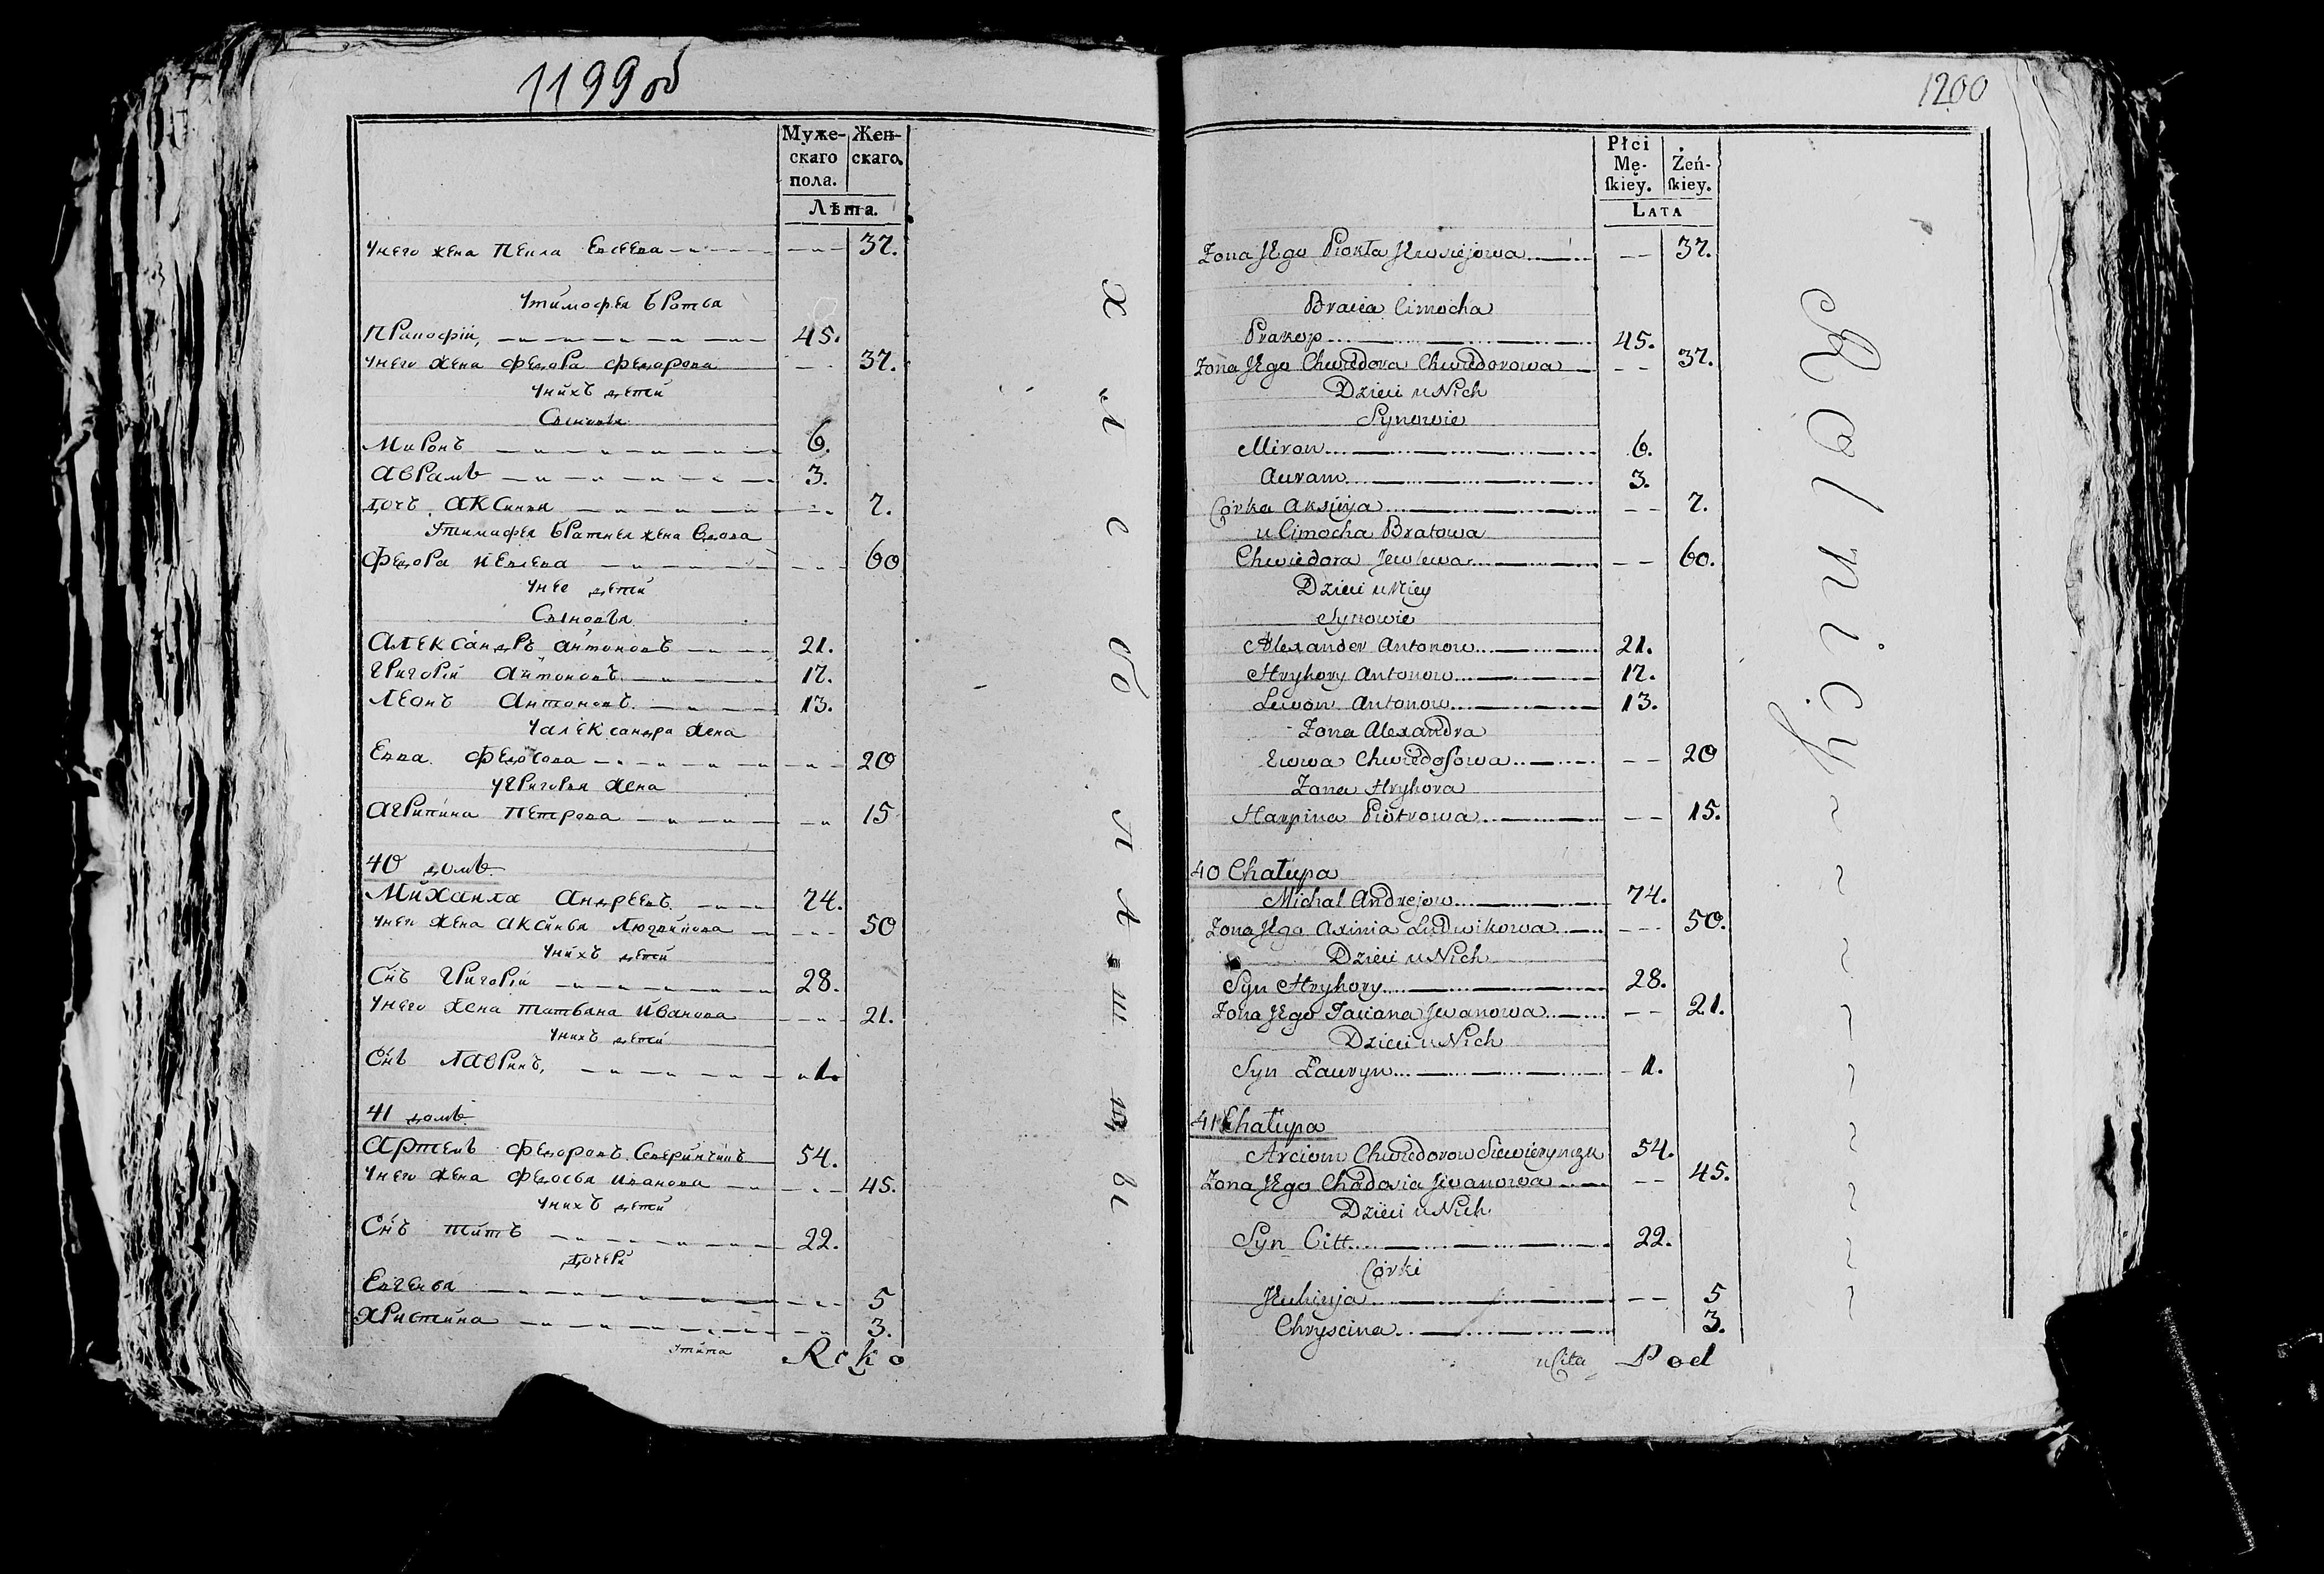 1199об
Муже- Жен-
скаго скаго.
пола.
Лѣта.
Унего жена Пекла Евсеева 37.
Утимофея братья
Пракофій, 45.
Унего жена Федора Федорова 37.
Унихъ дети
Сыновья
Миронъ 6.
Аврамъ 3.
Дочь Аксинья 7.
Утимофея братнея жена вдова
Федора 60
Унее дети
Сыновья
Александръ Антоновъ 21.
Григорій Антоновъ 17.
Леонъ Антоновъ 13.
Уалександра жена
Евва Федосова 20
Угригорья жена
Агрипина Петрова 15
40 домъ
Михаила Андреевъ 74.
Унего жена Аксинья 50
Унихъ дети
Снъ Григорій 28.
Унего жена Татьяна Иванова 21.
Унихъ дети
Снъ Лавринъ, 1.
41 домъ
Артемъ Федоровъ Северинчикъ 54.
Унего жена Федосья Иванова 45.
Унихъ дети
Снъ Титъ 22.
Дочери
Евгенья 5
Христина 3.
Утита Roko
Хлебопашцы
1200
Płci
Mę- Żeń-
skiey. skiey.
LATA
Żona JEgo Piokła JEwsiejowa 37.
Bracia Cimocha
Prakop 45.
Żona JEgo Chwiedora Chwiedorowa 37.
Dzieci u Nich
Synowie
Miron 6.
Auram 3.
Córka Aksinja 7.
u Cimocha Bratowa
Chwiedora Jewlewa 60.
Dzieci u Niey
Synowie
Alexander Antonow 21.
Hryhory Antonow 17.
Lewon Antonow 13.
Żona Alexandra
Ewwa Chwiedosowa 20
Żona Hryhora
Harpina Piotrowa 15.
40 Chałupa
Michal Andrejow 74.
Żona JEgo Axinia Ludwikowa 50.
Dzieci u Nich
Syn Hryhory 28.
Żona JEgo Taciana Jwanowa 21.
Dzieci u Nich
Syn Ławryn 1.
41 Chałupa
Arciom Chwiedorow Siewierynczyk 54.
Żona JEgo Chadosia Jwanowa 45.
Dzieci u Nich
Syn Citt 22.
Córki
JEuhinja 5
Chryscina 3.
u Cita Pod
Rolnicy